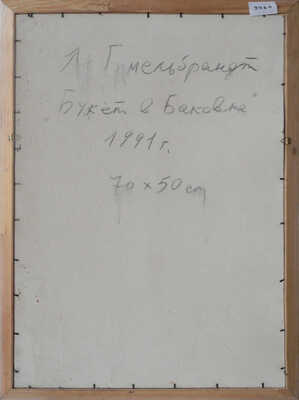 Л Гмельбрандт
"Букет в Баковка"
1991 г.
70 x 50 cm